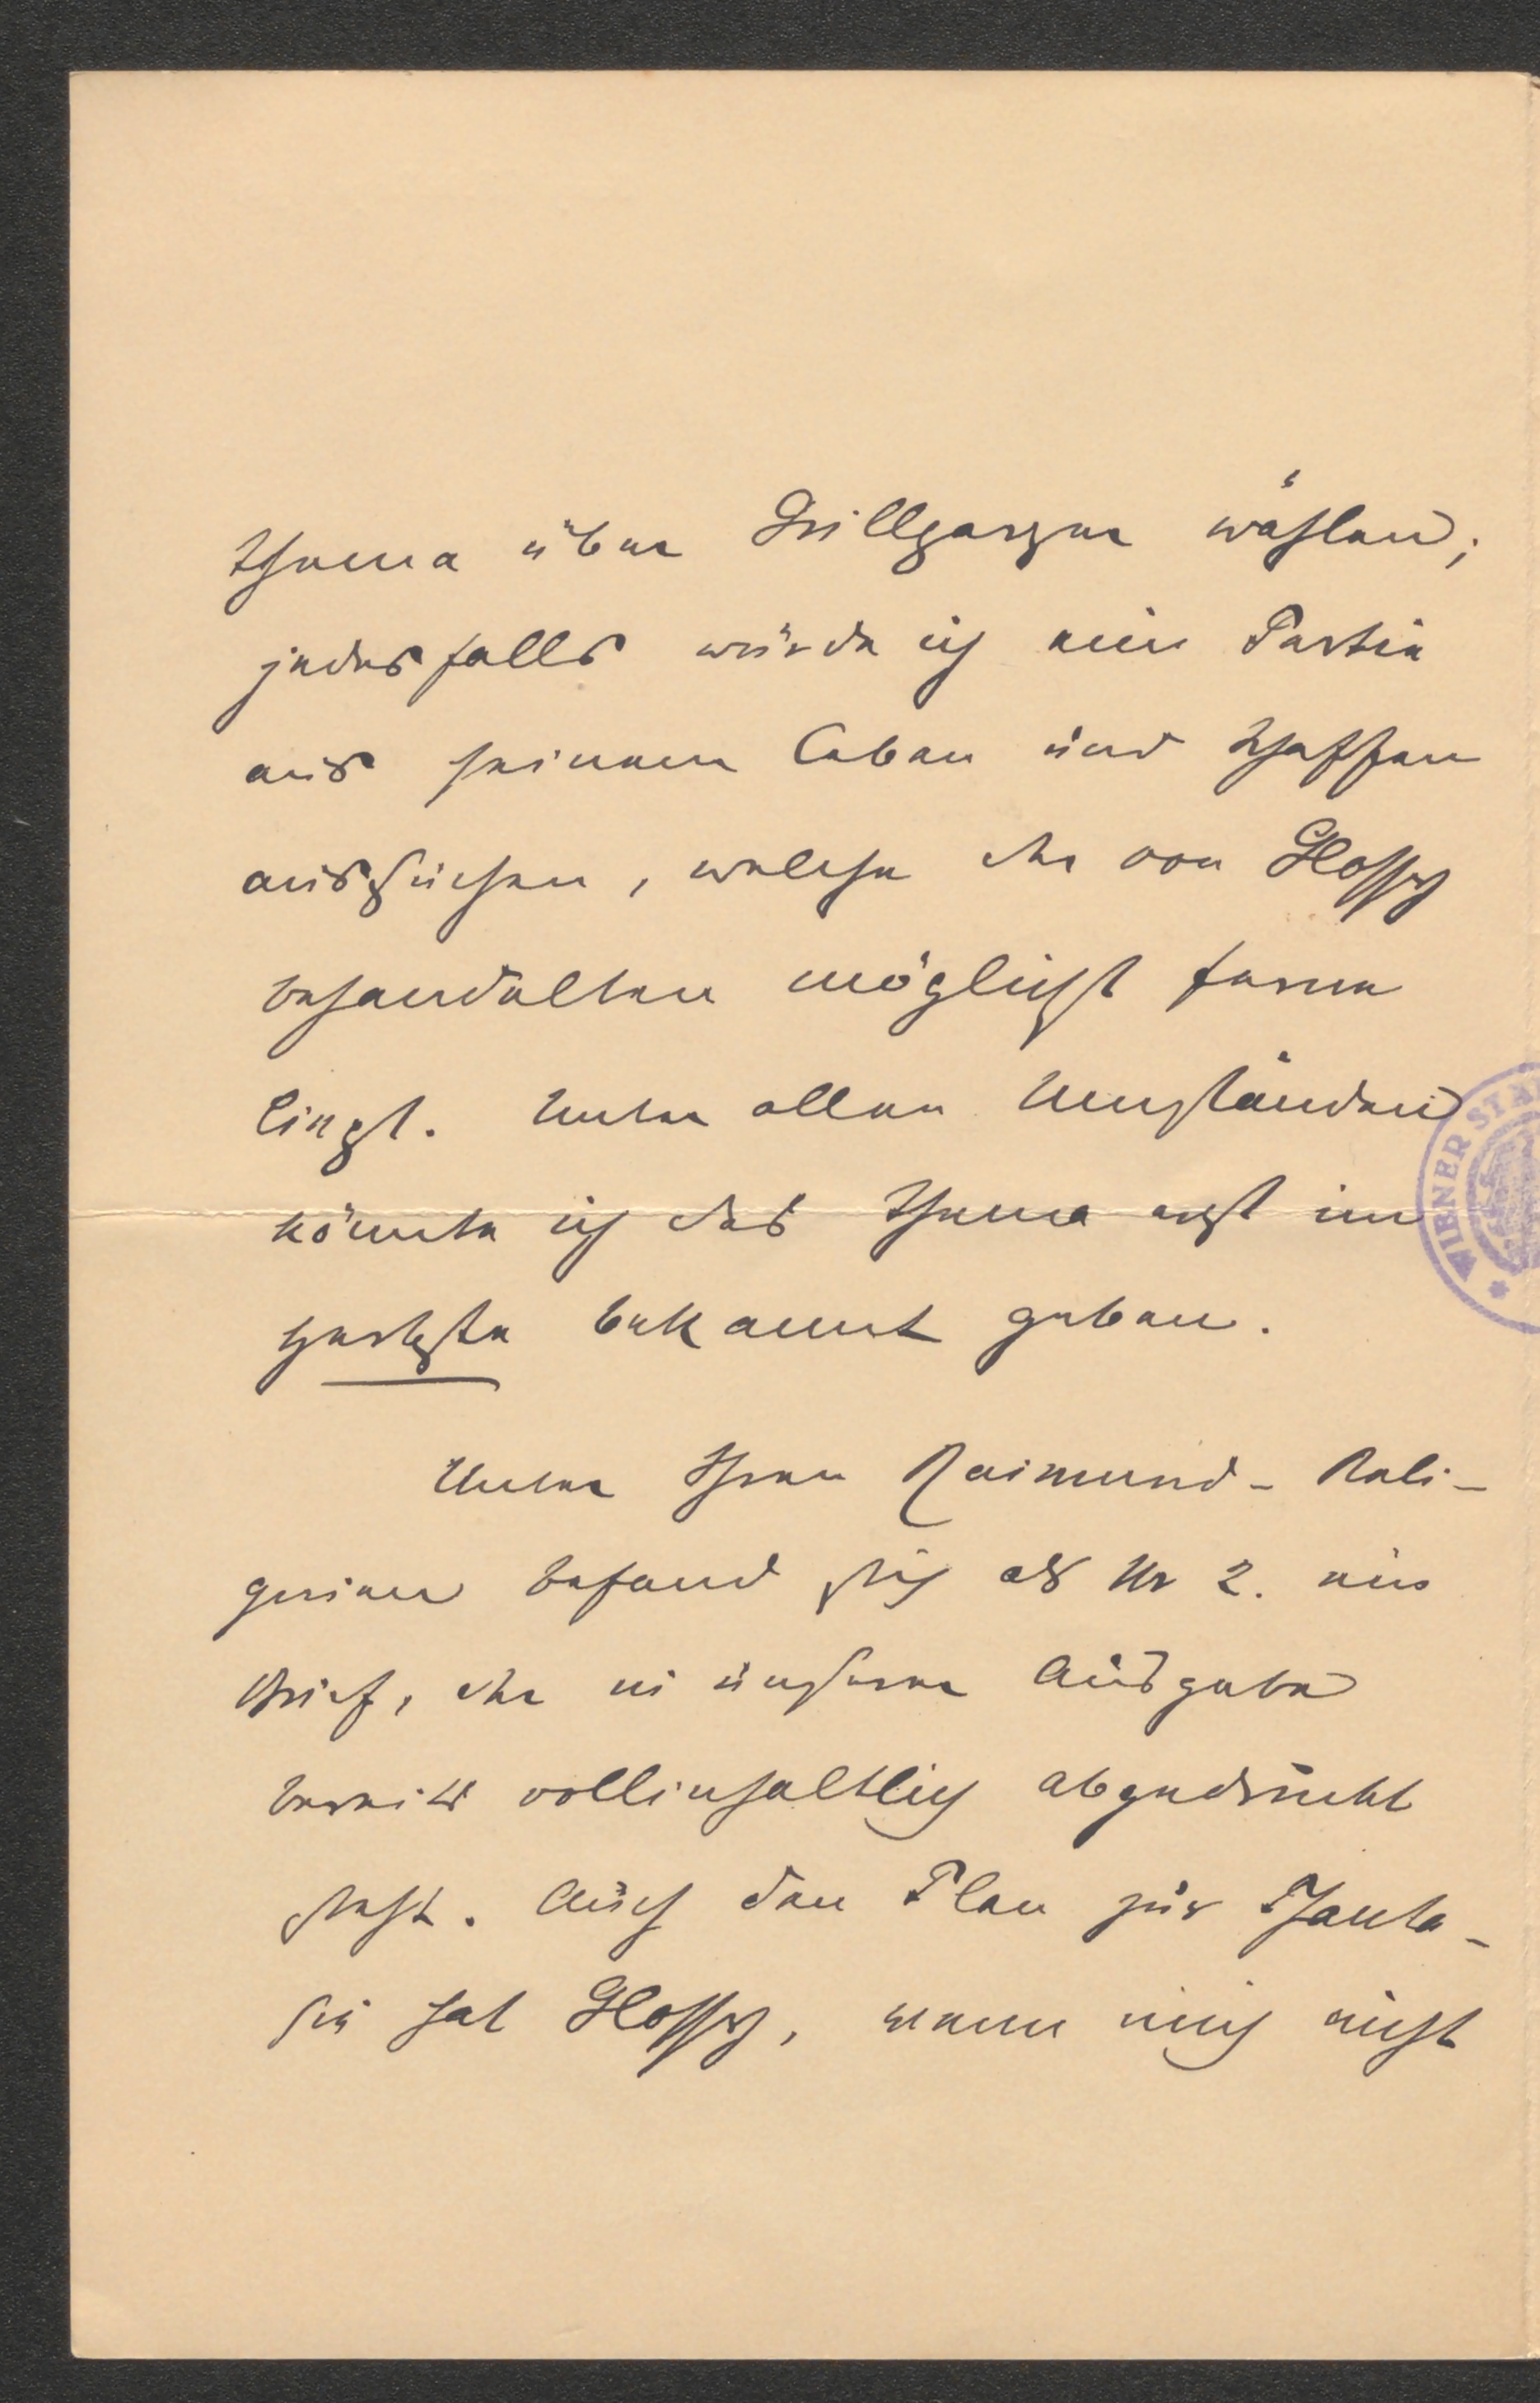 Thema über Grillparzer wählen;
jedesfalls würde ich eine Partie
aus seinem Leben und Schaffen
aussuchen, welche der von Glossy
behandelten möglichst ferne
liegt. Unter allen Umständen
könnte ich das Thema erst im
Herbste bekannt geben.
Unter Ihren Raimund-Reli-
quien befand sich als Nr 2. ein
Brief, der in unserer Ausgabe
bereits vollinhaltlich abgedruckt
steht. Auch den Plan zur Phanta-
sie hat Glossy, wenn mich nicht
WIENER STA